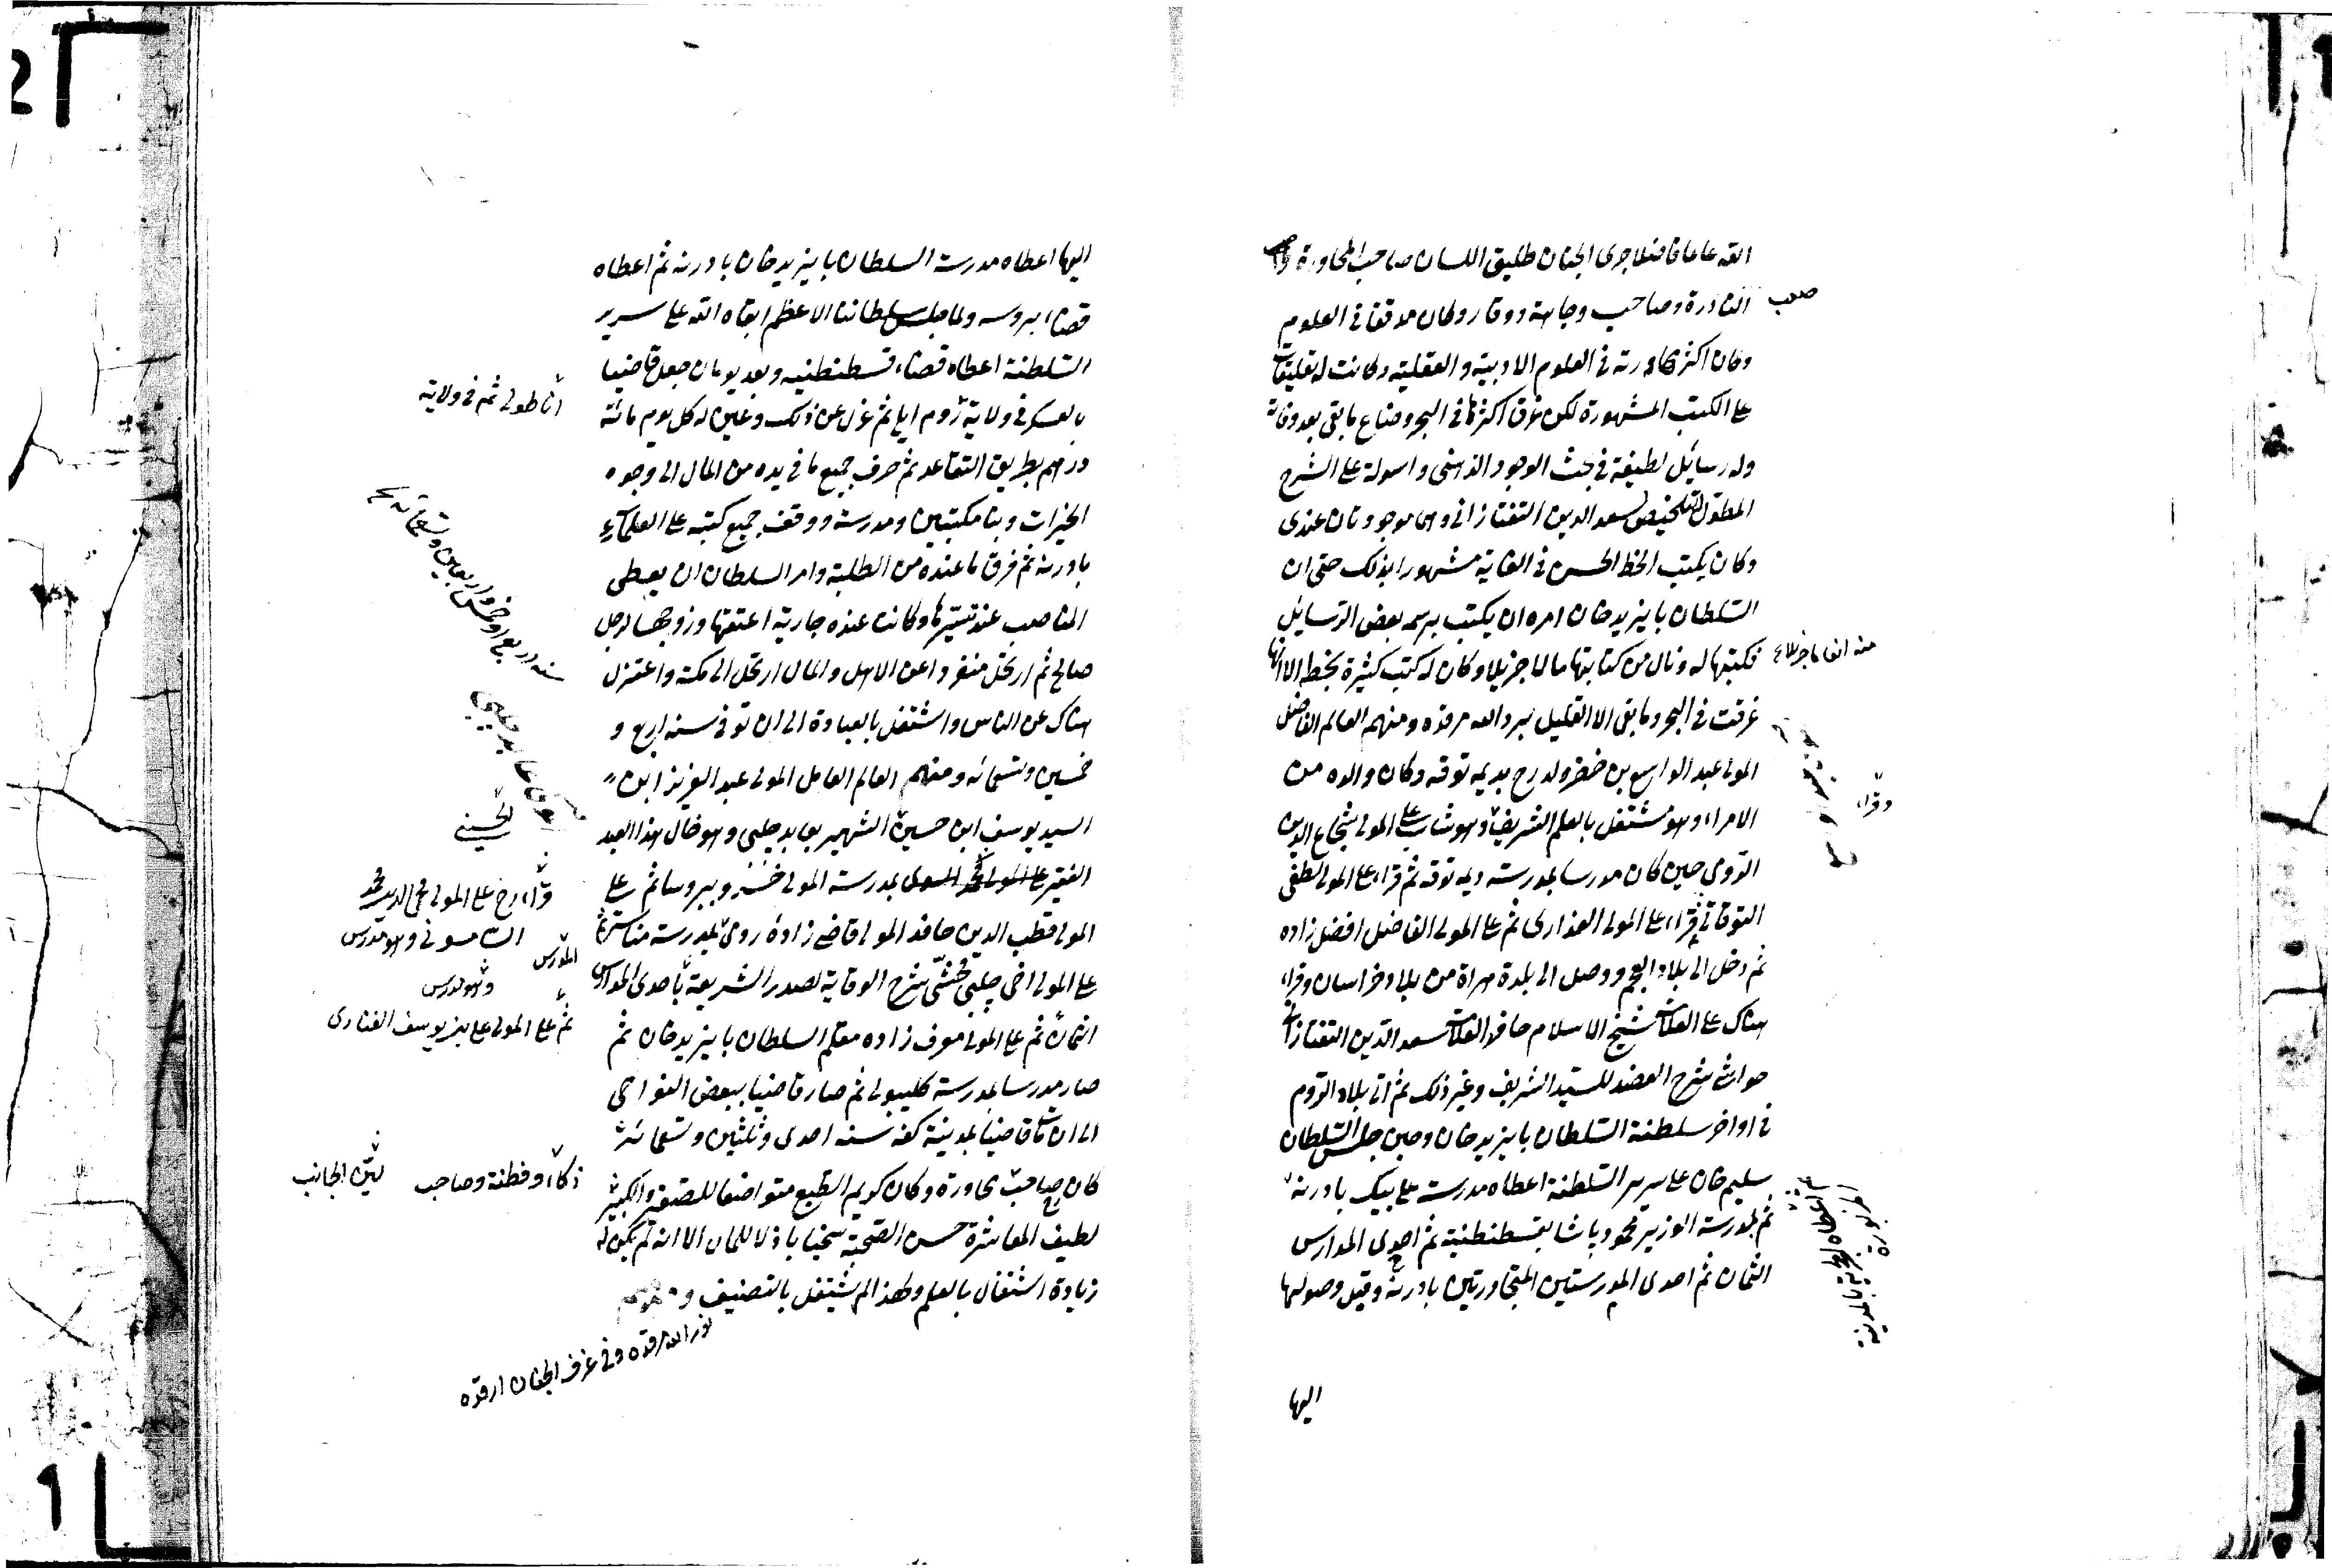 الله عالما فاضلا جرى الجنان طليق اللسان صاحب المحاورة
صاحب النادرة وصاحب وجاهة ووقار وكان مدققا في العلوم
وكان اكثر مهارته في العلوم الادبية والعقلية وكانت له تعليقات
على الكتب المشهورة لكن غرق اكثرها في البحر وضاع ما بقى بعد وفاته
وله رسائل لطيفة في بحث الوجود الذهنى واسولة على الشرح
المطول للتلخيص لسعد الدين التفتازانى وهى موجودتان عندى
وكان يكتب الخط الحسن في الغاية مشهورا بذلك حتى ان
السلطان بايزيد خان امره ان يكتب برسمه بعض الرسايل
فكتبها له ونال من كتابتها مالا جزيلا وكان له كتب كثيرة بخطه الا انها
منه انعاما جزيلا
غرقت في البحر وما بقى الا القليل برد الله مرقده ومنهم العالم الفاضل
المولى عبد الواسع بن خضر ولد رح بديمه توقه وكان والده من
وقراء
الامراء وهو مشتغل بالعلم الشريف وهو شاب على المولى شجاع الدين
الرومى حين كان مدرسا بمدرسة ديمه توقه ثم قراء على المولى لطفى
التوقاتى ثم قراء على المولى العذارى ثم على المولى الفاضل افضل زاده
ثم دخل الى بلاد العجم ووصل الى بلدة هراة من بلاد خراسان وقراء
هناك على العلامة شيخ الاسلام حافد العلامة سعد الدين التفتازانى
حواشى شرح العضد للسيد الشريف وغير ذلك ثم اتى بلاد الروم
في اواخر سلطنة السلطان بايزيد خان وحين جلس السلطان
سليم خان على سرير السلطنة اعطاه مدرسة على بيك بادرنه
ثم مدرسة الوزير محمود باشا بقسطنطنية ثم احدى المدارس
الثمان ثم احدى المدرستين المتجاورتين بادرنه وقبل وصوله اليها
اليها
اليها اعطاه مدرسة السلطان بايزيد خان بادرنه ثم اعطاه
قضاء بروسه ولما جلس سلطاننا الاعظم ابقاه الله على سرير
السلطنة اعطاه قضاء قسطنطنيه وبعد يومان جعل قاضيا
بالعسكر في ولاية روم ايلى ثم عزل عن ذلك وعين له كل يوم مائة
اناطولى ثم في ولاية
درهم بطريق التقاعد ثم صرف جميع ما في يده من المال الى وجوه
الخيرات وبنا مكتبين ومدرسة ووقف جميع كتبه على العلماء
بادرنه ثم فرق ما عنده من الطلبة وامر السلطان ان يعطى
المناصب عند تيسرها وكانت عنده جارية اعتقها وزوجها لرجل
صالح ثم ارتحل منفردا عن الاهل والمال ارتحل الى مكة واعتزل
سنة اربع او خمس واربعين وتسعمائه
هناك عن الناس واشتغل بالعبادة الى ان توفى سنه اربع و
خمسين وتسعمائه ومنهم العالم العامل المولى عبد العزيز ابن
السيد يوسف ابن حسين الشهير بعابد چلبى وهو خال هذا العبد
الحسينى
الفقير على المولى محمد السامسونى بمدرسة المولى خسرو ببروسا ثم على
قراء رح على المولى محى الدين محمد
السامسونى وهو مدرس
المولى قطب الدين حافد المولى قاضى زاده رومى بمدرسة مناستر ثم
المدرس
على المولى اخى چلبى محشى شرح الوقاية لصدر الشريعة باحدى المدارس
وهو مدرس
الثمان ثم على المولى معرف زاده معلم السلطان بايزيد خان ثم
ثم على المولى على بن يوسف الفنارى
صار مدرسا بمدرسة كليبولى ثم صار قاضيا ببعض النواحى
الى ان مات قاضيا بمدينة كفه سنه احدى وثلثين وتسعمائه
كان رح صاحب محاورة وكان كريم الطبع متواضعا للصغير والكبير
ذكاء وفطنة وصاحب
لين الجانب
لطيف المعاشرة حسن الصحبة سخيا باذلا للمال الا انه لم يكن له
زيادة اشتغال بالعلم ولهذا لم يشتغل بالتصنيف
نور الله مرقده وفى غرف الجنان ارقده